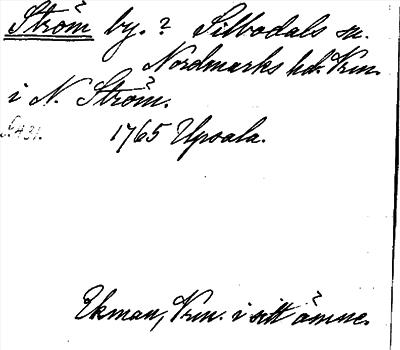 Ström by. ? Silbodals sn.
Nordmarks hd. Vrm.
i N. Ström.
S. 431. 1765 Upsala.
Ekman, Vrm. i sitt ämne.